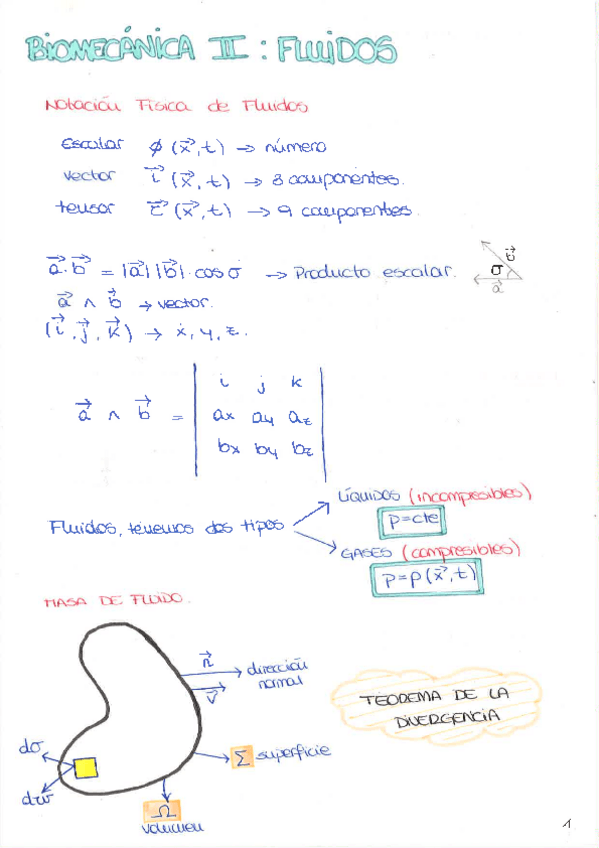 BIOMECÁNICA III : FLUIDOS
Notación Física de Fluidos
Escalar ϕ (x⃗, t) → número
vector i⃗ (x⃗, t) → 3 componentes.
tensor τ⃗ (x⃗, t) → 9 componentes.
a⃗·b⃗ = |a⃗| |b⃗| · cos σ → Producto escalar.
b⃗
σ
a⃗
a⃗ ∧ b⃗ → vector.
(i⃗, j⃗, k⃗) → x, y, z.
i j k
a⃗ ∧ b⃗ = ax ay az
bx by bz
LÍQUIDOS (incompresibles)
ρ=cte
Fluidos, tenemos dos tipos
GASES (compresibles)
ρ=ρ(x⃗, t)
MASA DE FLUIDO.
n⃗ → dirección normal
v⃗
TEOREMA DE LA
DIVERGENCIA
Σ superficie
dσ
dw
Ω
volumen
1